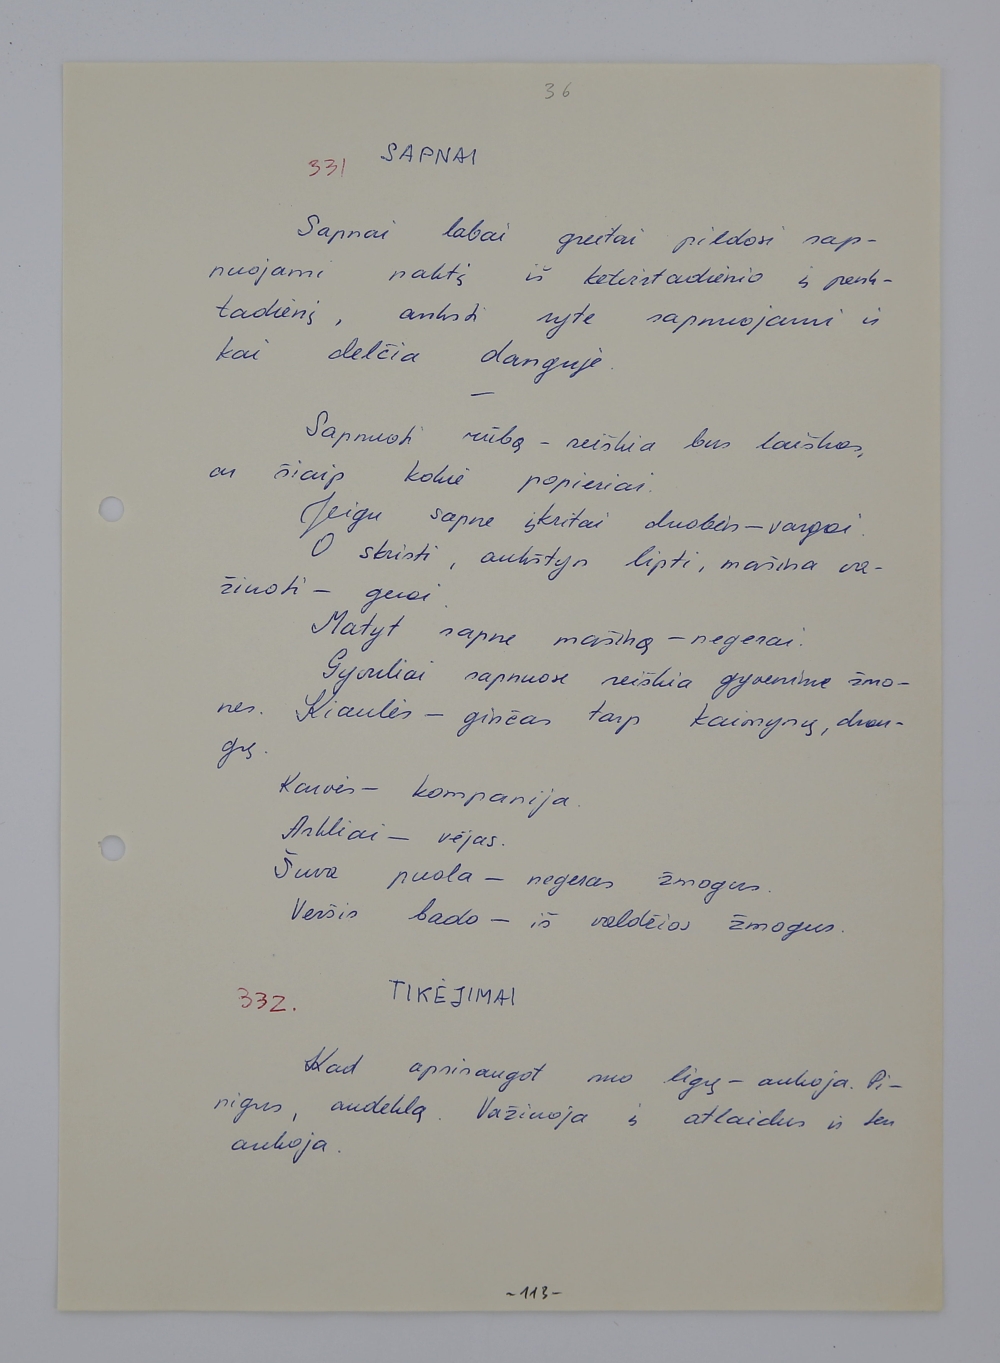 36
331 SAPNAI
Sapnai labai greitai pildosi sap-
nuojami naktį iš ketvirtadienio į penk-
tadienį, anksti ryte sapnuojami ir
kai delčia danguje.
—
Sapnuoti rūbą – reiškia bus laiškas,
ar šiaip kokie popieriai.
Jeigu sapne įkritai duobėn – vargai.
O skristi, aukštyn lipti, mašina va-
žiuoti – gerai.
Matyt sapne mašiną – negerai.
Gyvuliai sapnuose reiškia gyvenime žmo-
nes. Kiaulės – ginčas tarp kaimynų, drau-
gų.
Karvės – kompanija.
Arkliai – vėjas.
Šuva puola – negeras žmogus.
Veršis bado – iš valdžios žmogus.
332. TIKĖJIMAI
Kad apsisaugot nuo ligų – aukoja. Pi-
nigus, audeklą. Važiuoja į atlaidus ir ten
aukoja.
- 113 -